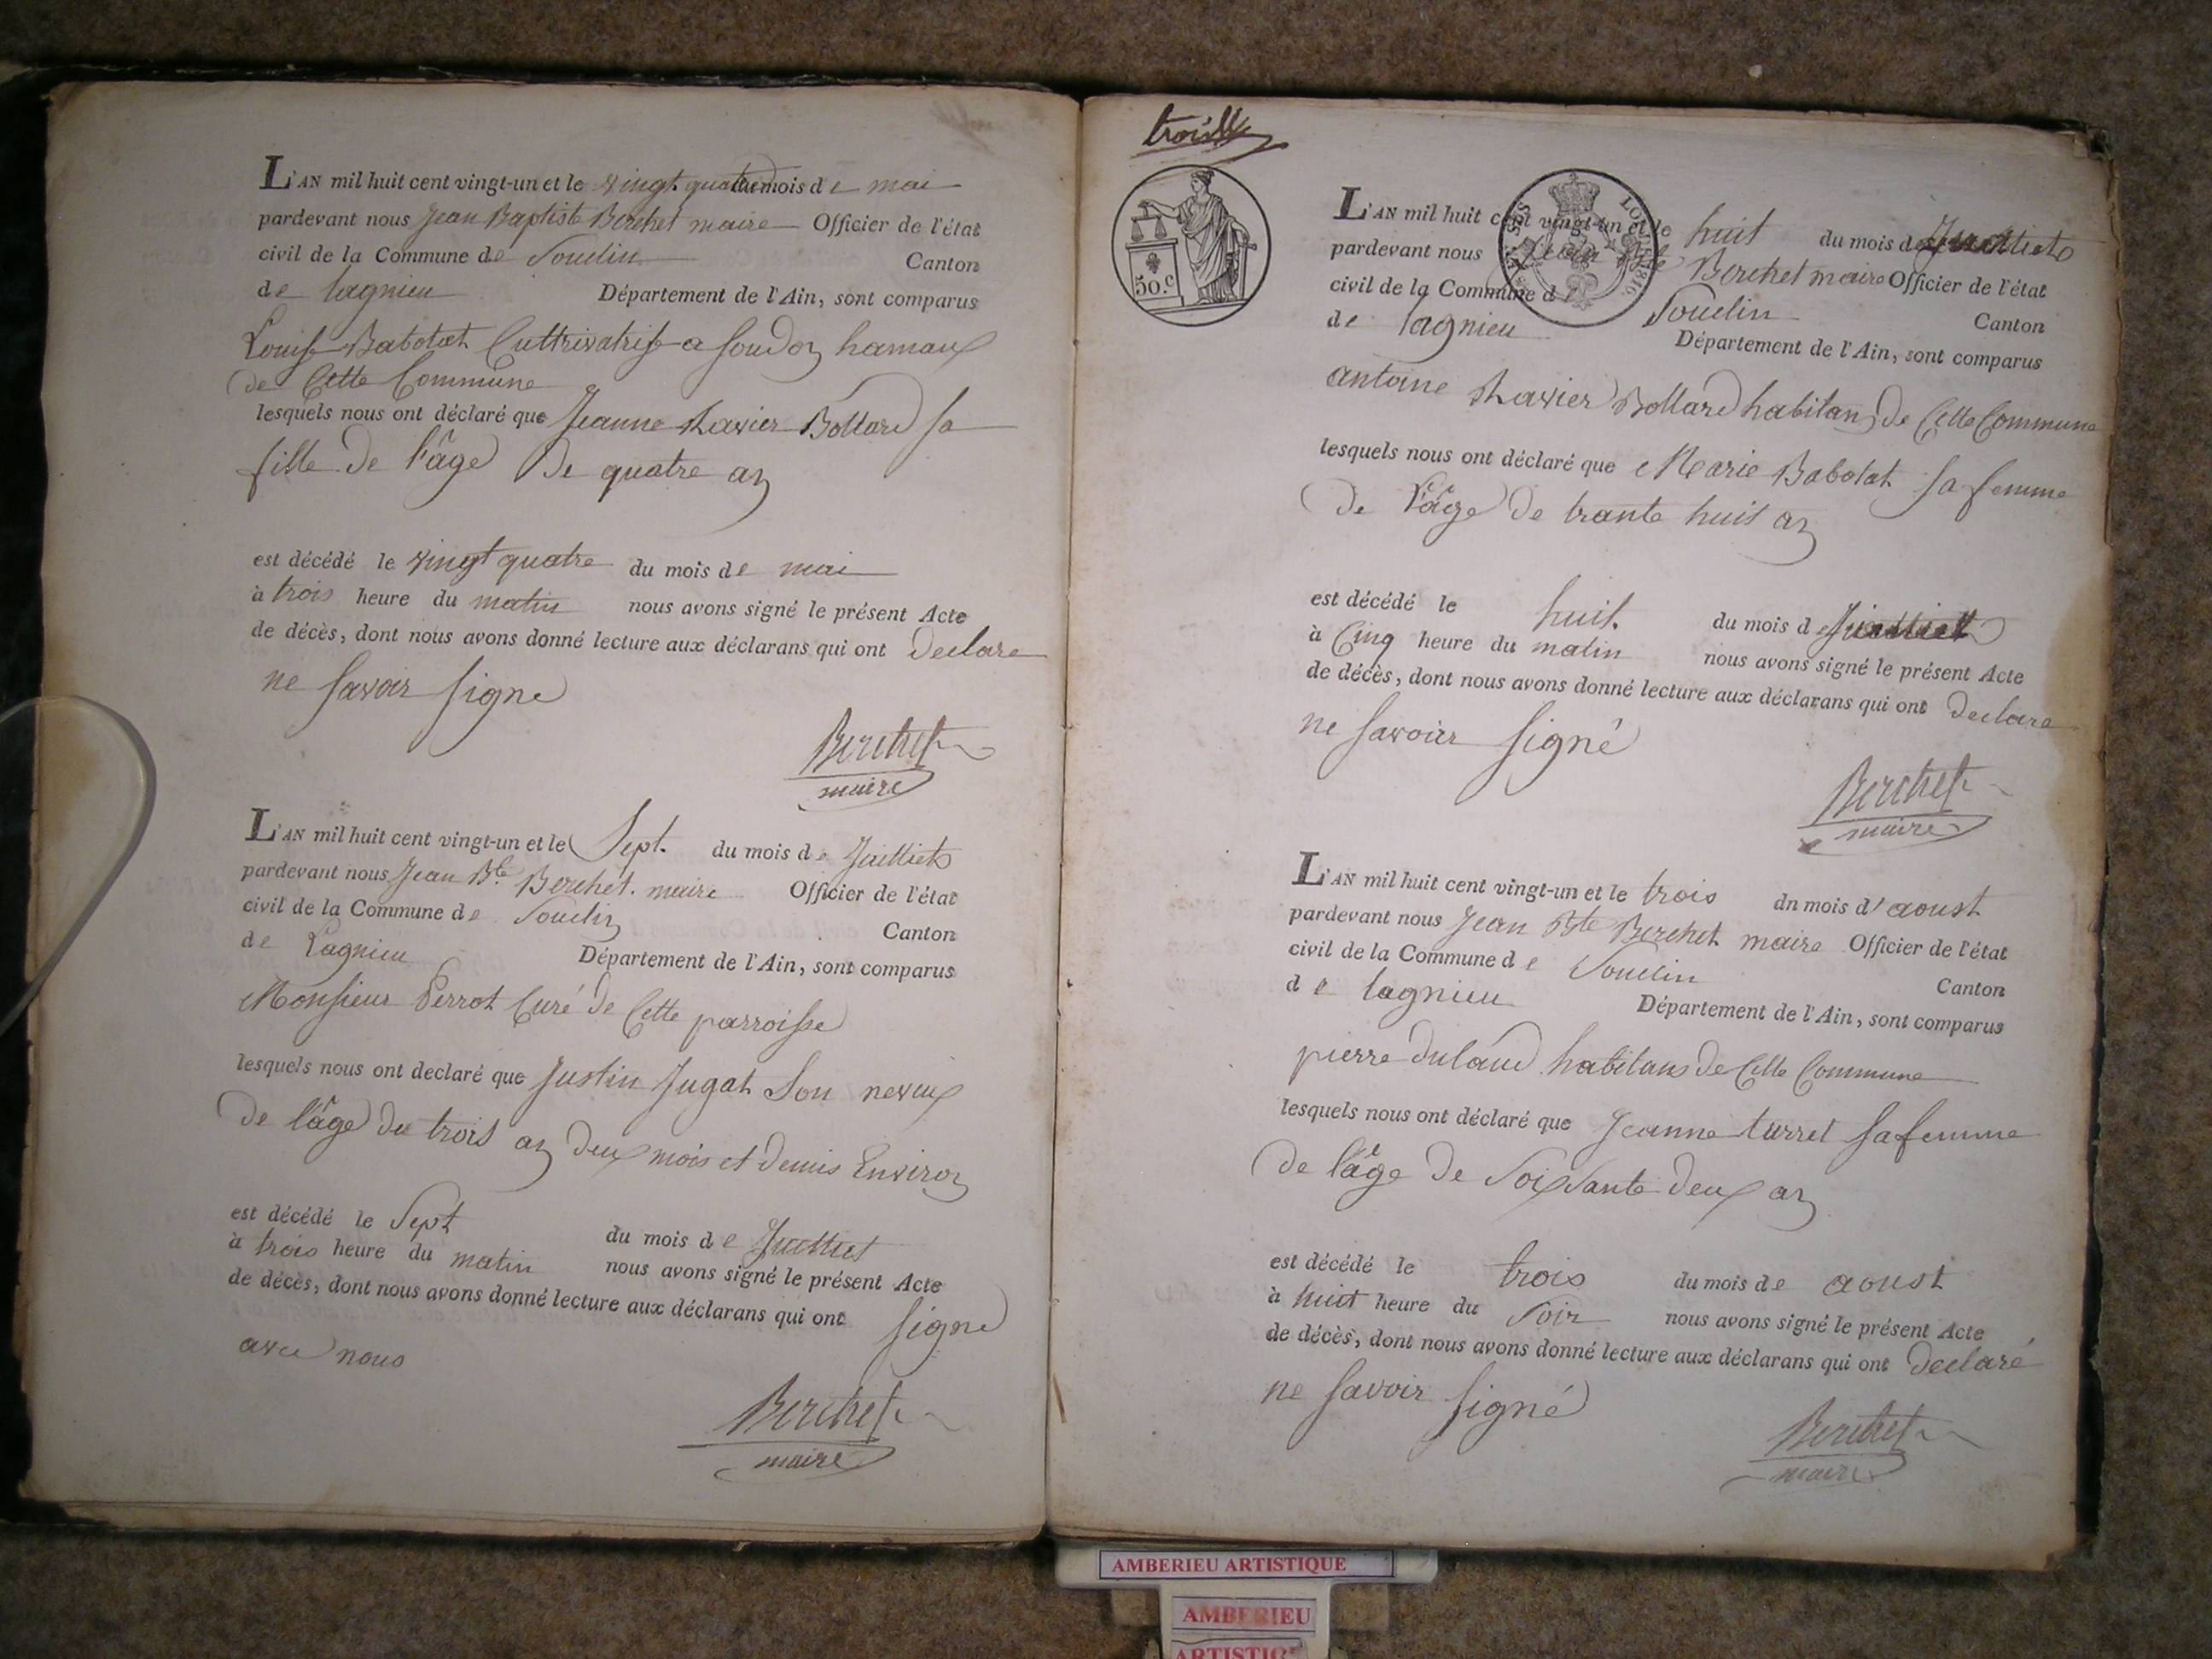 L'AN mil huit cent vingt-un et le vingt quatre mois de mai
pardevant nous Jean Baptiste Berchet maire Officier de l'état
civil de la Commune de Souclin Canton
de lagnieu Département de l'Ain, sont comparus
Louise Babolat Cultrivatrise a soudon hamaux
de Cette Commune
lesquels nous ont déclaré que Jeanne Ravier Bollard sa
fille de l'âge de quatre an
est décédé le vingt quatre du mois de mai
à trois heure du matin nous avons signé le présent Acte
de décès, dont nous avons donné lecture aux déclarans qui ont declare
ne savoir signe
Berchet
maire
L'AN mil huit cent vingt-un et le Sept. du mois de Juilliet
pardevant nous Jean Bte Berchet. maire Officier de l'état
civil de la Commune de Souclin Canton
de Lagnieu Département de l'Ain, sont comparus
Monsieur Perrot Curé de Cette parroisse
lesquels nous ont declaré que Justin Jugat Son neveux
de l'âge de trois an deux mois et demis Environ
est décédé le Sept du mois de Juilliet
à trois heure du matin nous avons signé le présent Acte
de décès, dont nous avons donné lecture aux déclarans qui ont signe
avec nous
Berchet
maire
50.c
LOI 1816
L'AN mil huit cent vingt-un et le huit du mois de Juilliet
pardevant nous Jean Bte Berchet maire Officier de l'état
civil de la Commune de Souclin Canton
de lagnieu Département de l'Ain, sont comparus
antoine Ravier Bollard habitan de Cette Commune
lesquels nous ont déclaré que Marie Babolat sa femme
de l'âge de trante huit an
est décédé le huit. du mois de Juilliet
à Cinq heure du matin nous avons signé le présent Acte
de décès, dont nous avons donné lecture aux déclarans qui ont declare
ne savoir signé
Berchet
maire
L'AN mil huit cent vingt-un et le trois dn mois d'aoust
pardevant nous Jean Bte Berchet maire Officier de l'état
civil de la Commune de Souclin Canton
de lagnieu Département de l'Ain, sont comparus
pierre dulaud habitans de Cette Commune
lesquels nous ont déclaré que Jeanne turret sa femme
de l'âge de Soixsante deux an
est décédé le trois du mois de aoust
à huit heure du Soir nous avons signé le présent Acte
de décès, dont nous avons donné lecture aux déclarans qui ont declaré
ne savoir signé
Berchet
maire
AMBERIEU ARTISTIQUE
AMBERIEU
ARTISTIQUE